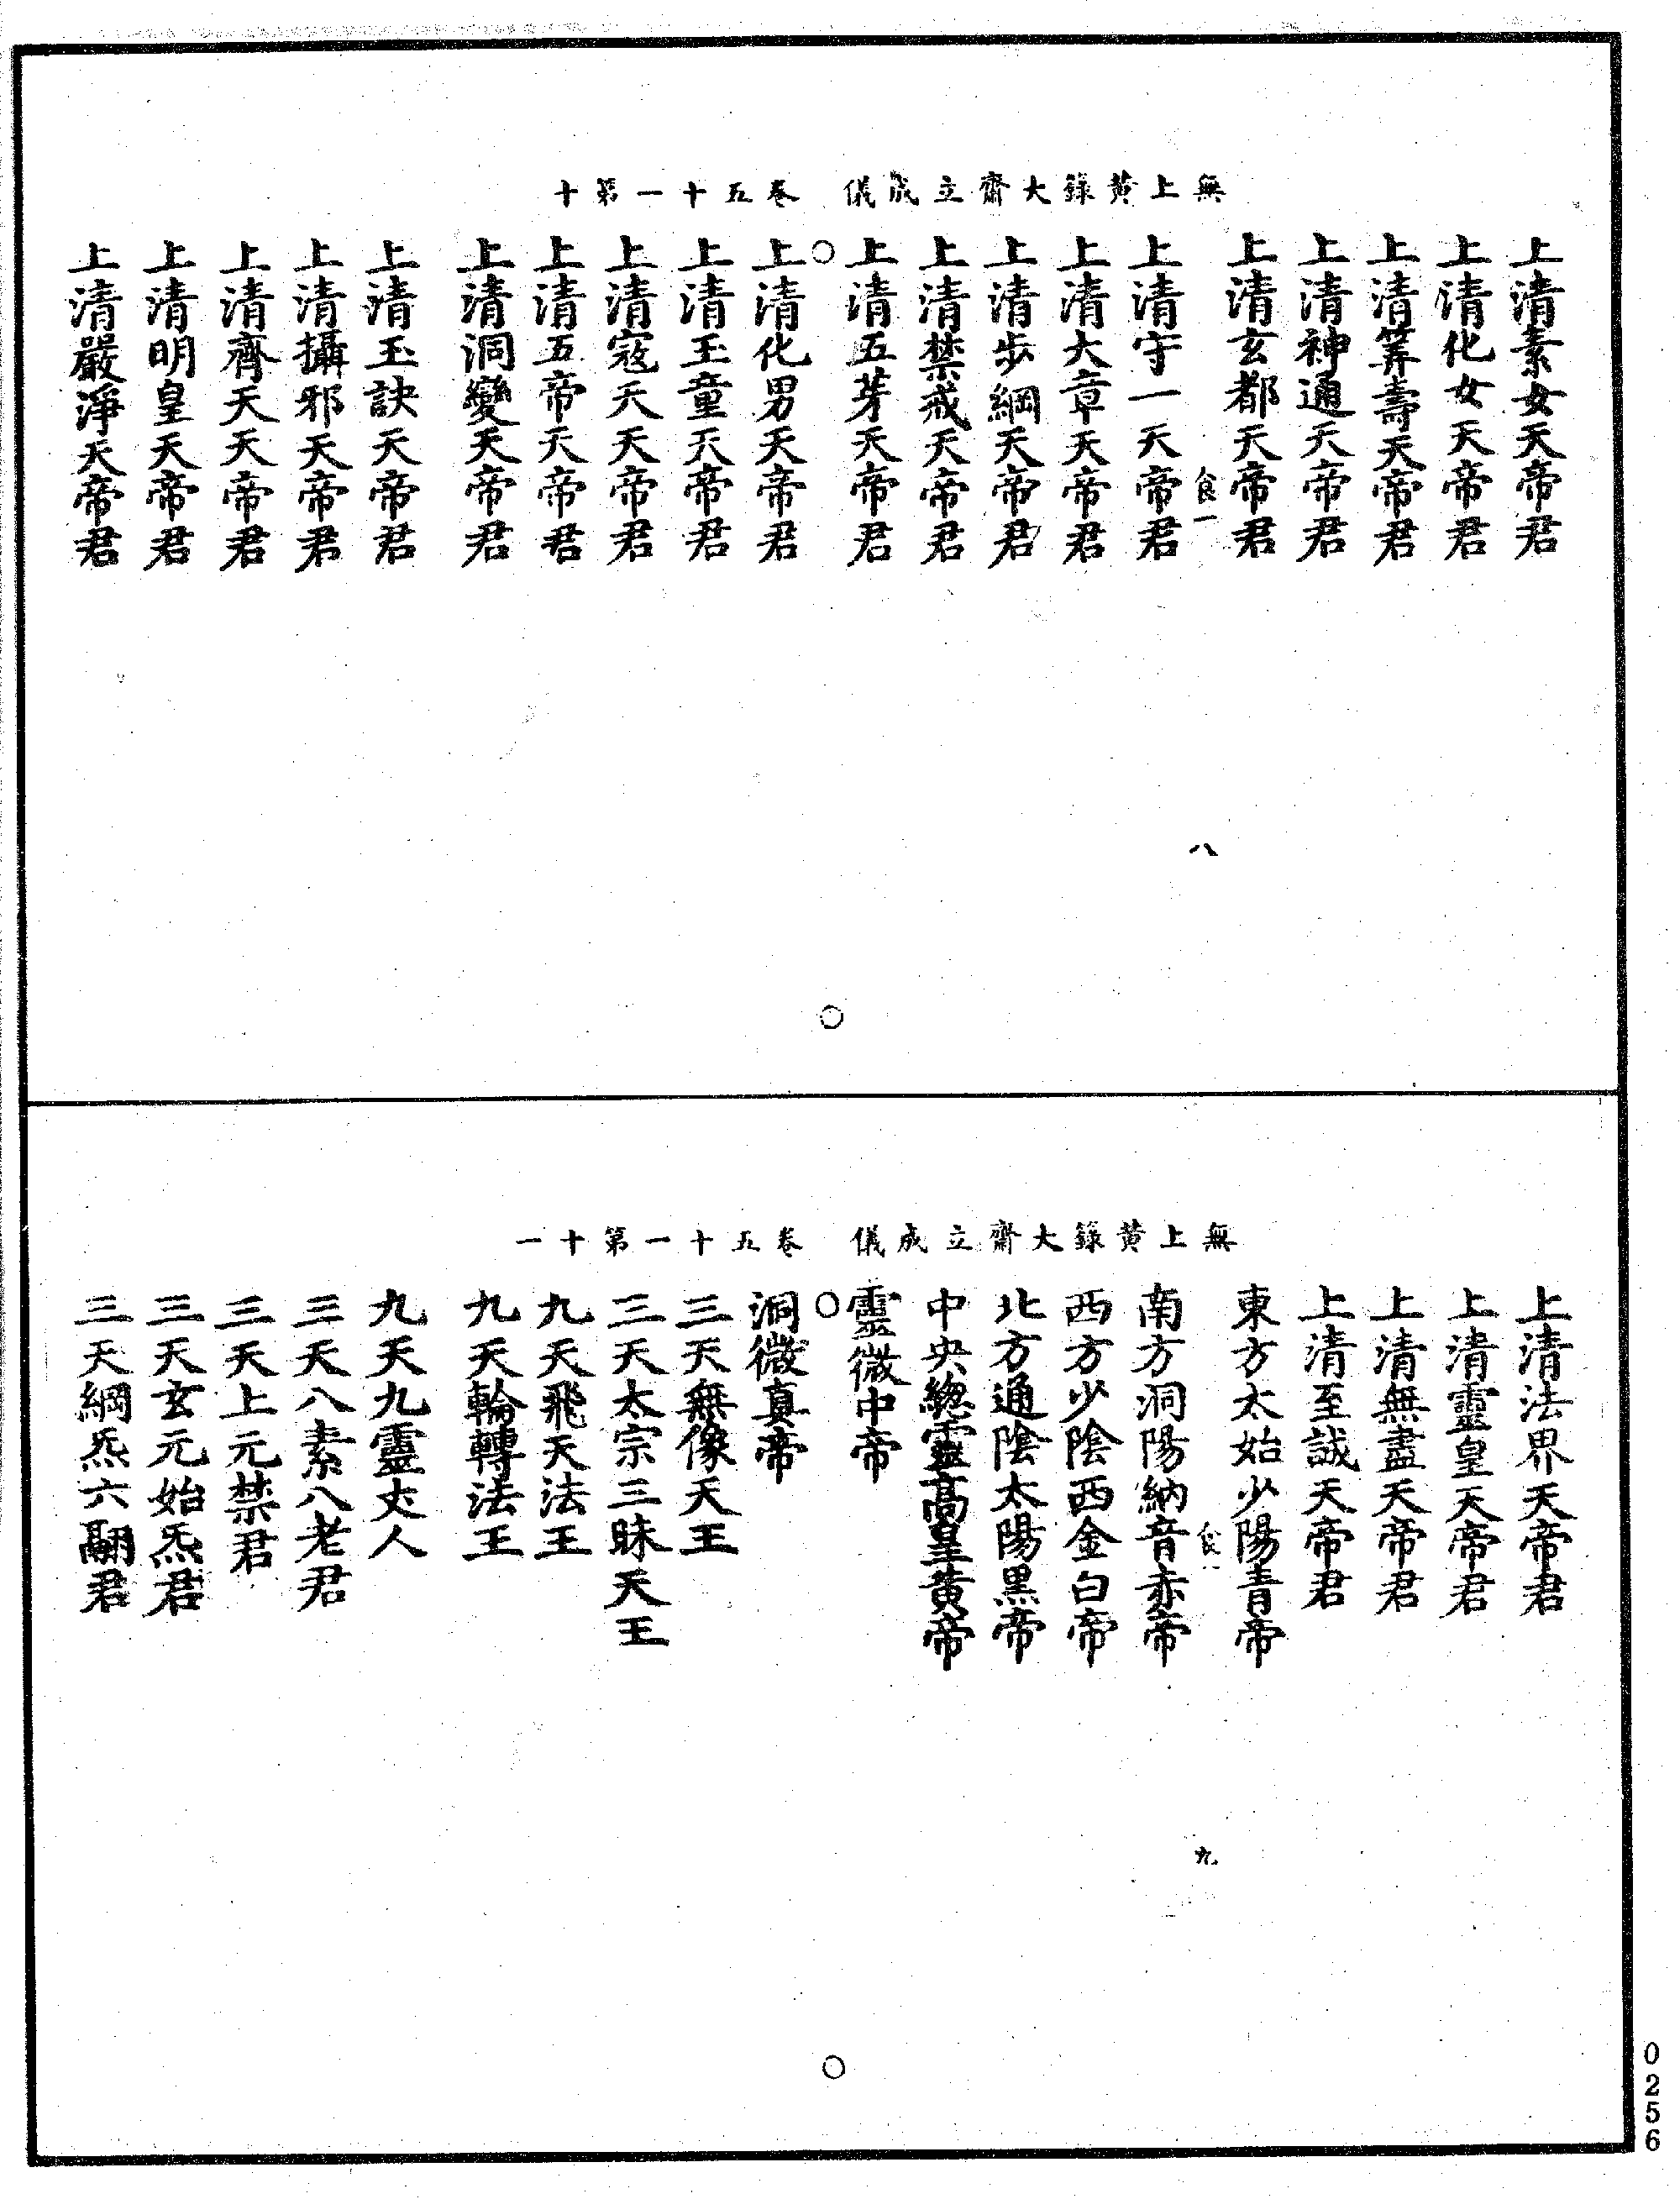 無上黄籙大齋立成儀　卷五十一第十
上清素女天帝君
上清化女天帝君
上清筭壽天帝君
上清神通天帝君
上清玄都天帝君
食一　八
上清守一天帝君
上清大章天帝君
上清步綱天帝君
上清禁戒天帝君
上清五芽天帝君
上清化男天帝君
上清玉童天帝君
上清寇天天帝君
上清五帝天帝君
上清洞變天帝君
上清玉訣天帝君
上清攝邪天帝君
上清齊天天帝君
上清明皇天帝君
上清嚴淨天帝君
無上黄籙大齋立成儀　卷五十一第十一
上清法界天帝君
上清靈皇天帝君
上清無盡天帝君
上清至誠天帝君
東方太始少陽青帝
食一　九
南方洞陽納音赤帝
西方少陰西金白帝
北方通陰太陽黑帝
中央總靈高皇黃帝
靈微中帝
洞微真帝
三天無像天王
三天太宗三昧天王
九天飛天法王
九天輪轉法王
九天九靈丈人
三天八素八老君
三天上元禁君
三天玄元始炁君
三天綱炁六翮君
0256